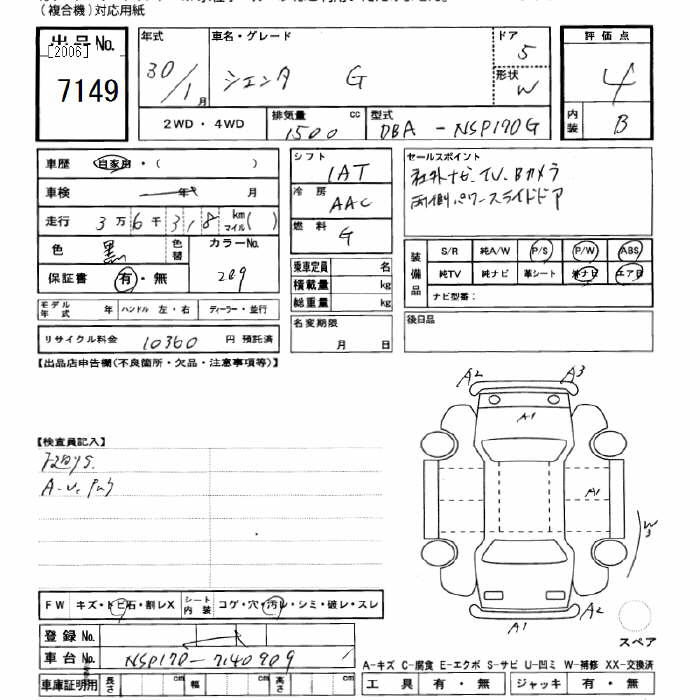 (複合機)対応用紙
出品No.
[2006]
7149
年式
30/1月
車名・グレード
シエンタ G
ドア
5
形状
W
評価点
4
内装
B
2WD・4WD
排気量 cc
1500
型式
DBA-NSP170G
車歴 自家用・( )
車検 年 月
走行 3万6千318 km マイル( )
色 黒 色替 カラーNo.
209
保証書 有・無
モデル年式 年 ハンドル 左・右 ディーラー・並行
リサイクル料金 10360 円 預託済
シフト
IAT
冷房
AAC
燃料
G
乗車定員 名
積載量 kg
総重量 kg
名変期限
月 日
セールスポイント
社外ナビ、TV、Bカメラ
両側パワースライドドア
装備品
S/R 純A/W P/S P/W ABS
純TV 純ナビ 革シート 革ナビ エアB
ナビ型番:
後日品
【出品店申告欄(不良箇所・欠品・注意事項等)】
【検査員記入】
A2 A3
A1
A1
W3
A1
A2
スペア
FW キズ・トビ石・割レX シート内装 コゲ・穴・汚レ・シミ・破レ・スレ
登録No.
車台No. NSP170-7140909
車庫証明用 長さ cm 幅 cm 高さ cm
A-キズ C-腐食 E-エクボ S-サビ U-凹ミ W-補修 XX-交換済
工具 有・無 ジャッキ 有・無